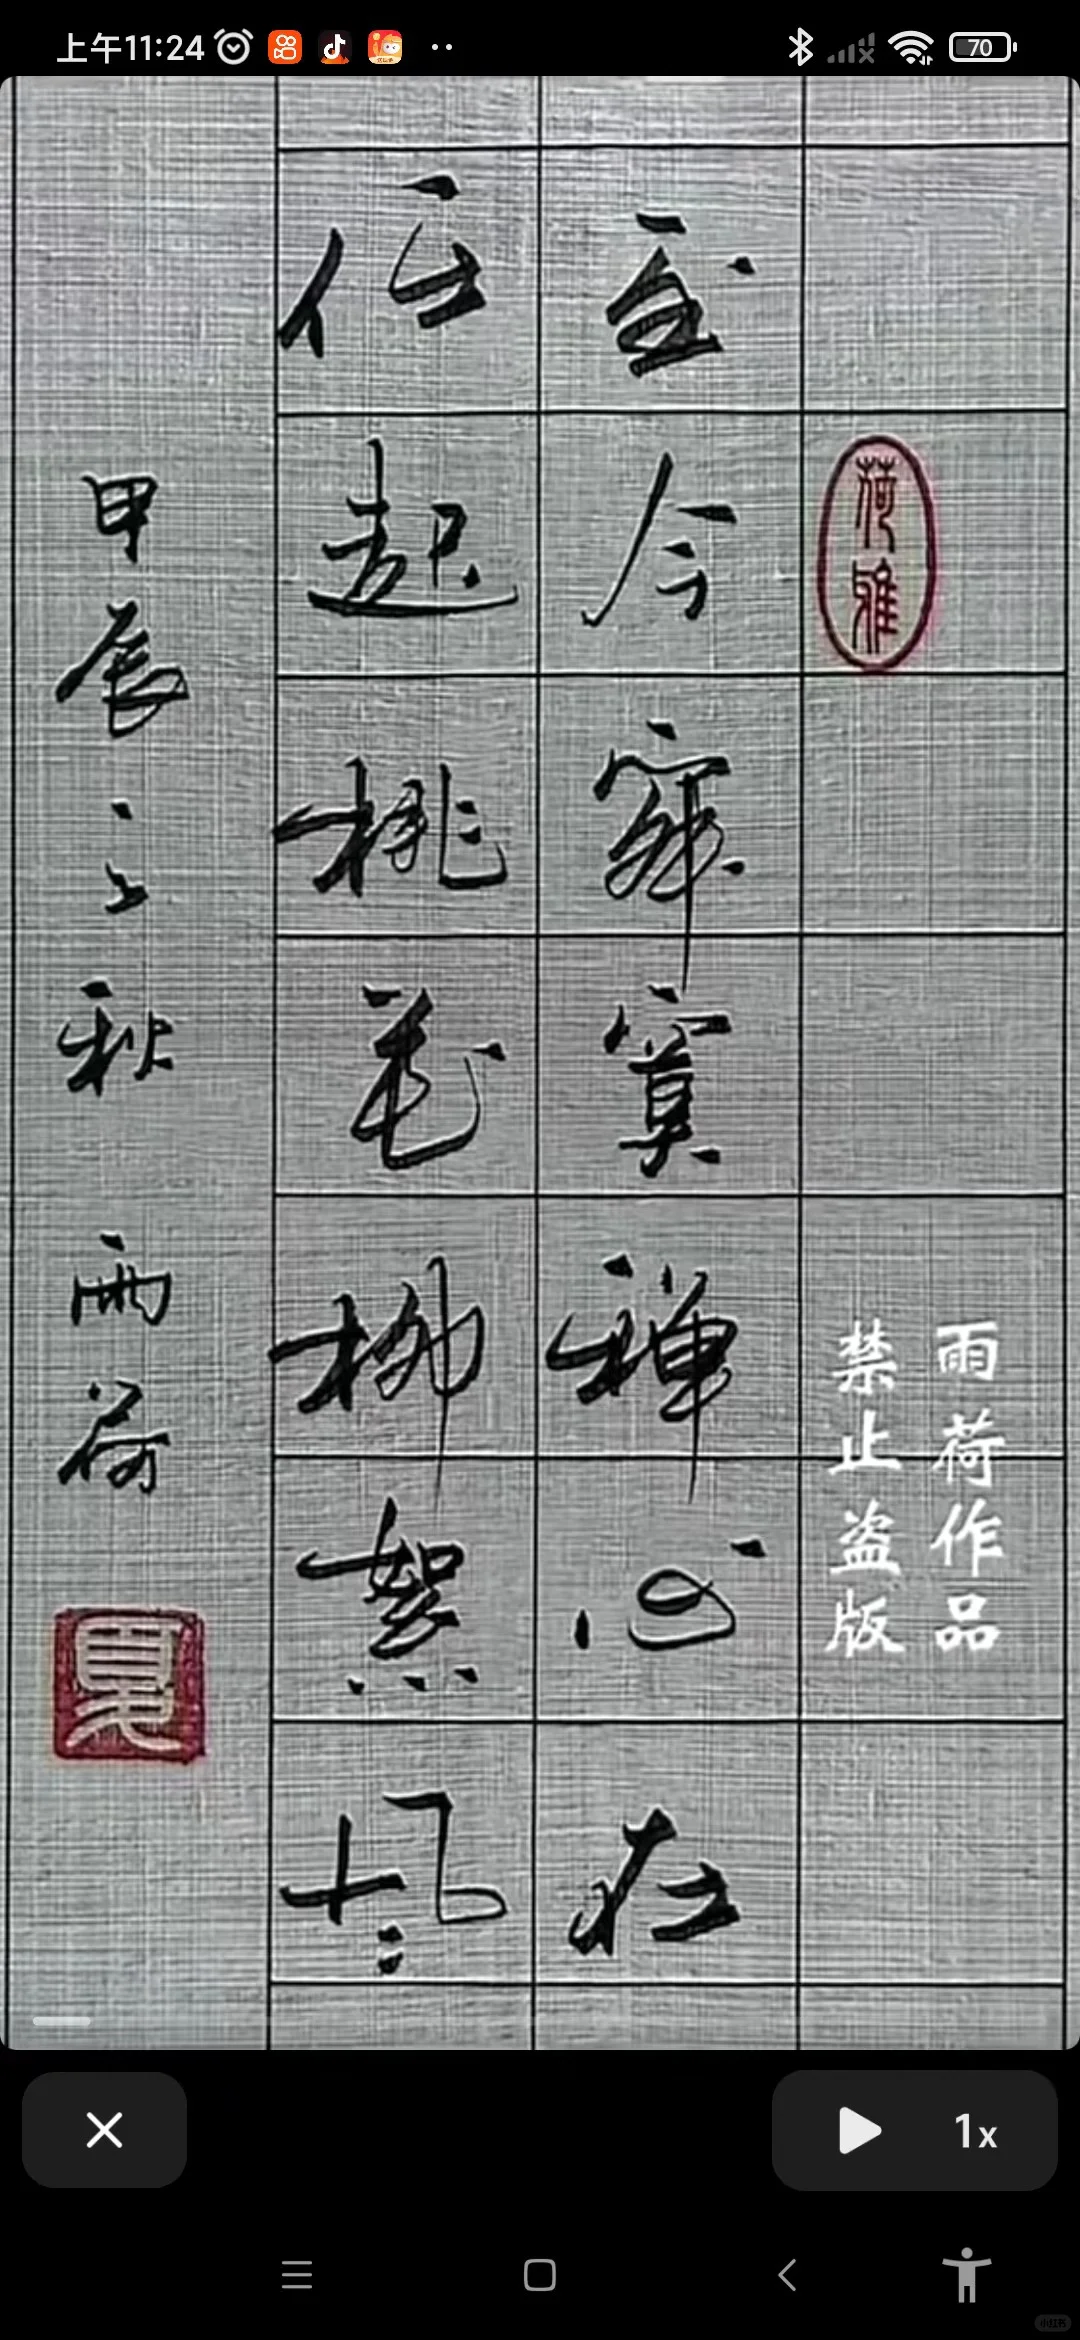 上午11:24
70
荷雅
雨荷作品
禁止盗版
至今寂寞禅心在
任起桃花柳絮风
甲辰之秋 雨荷
夏
1x
小红书